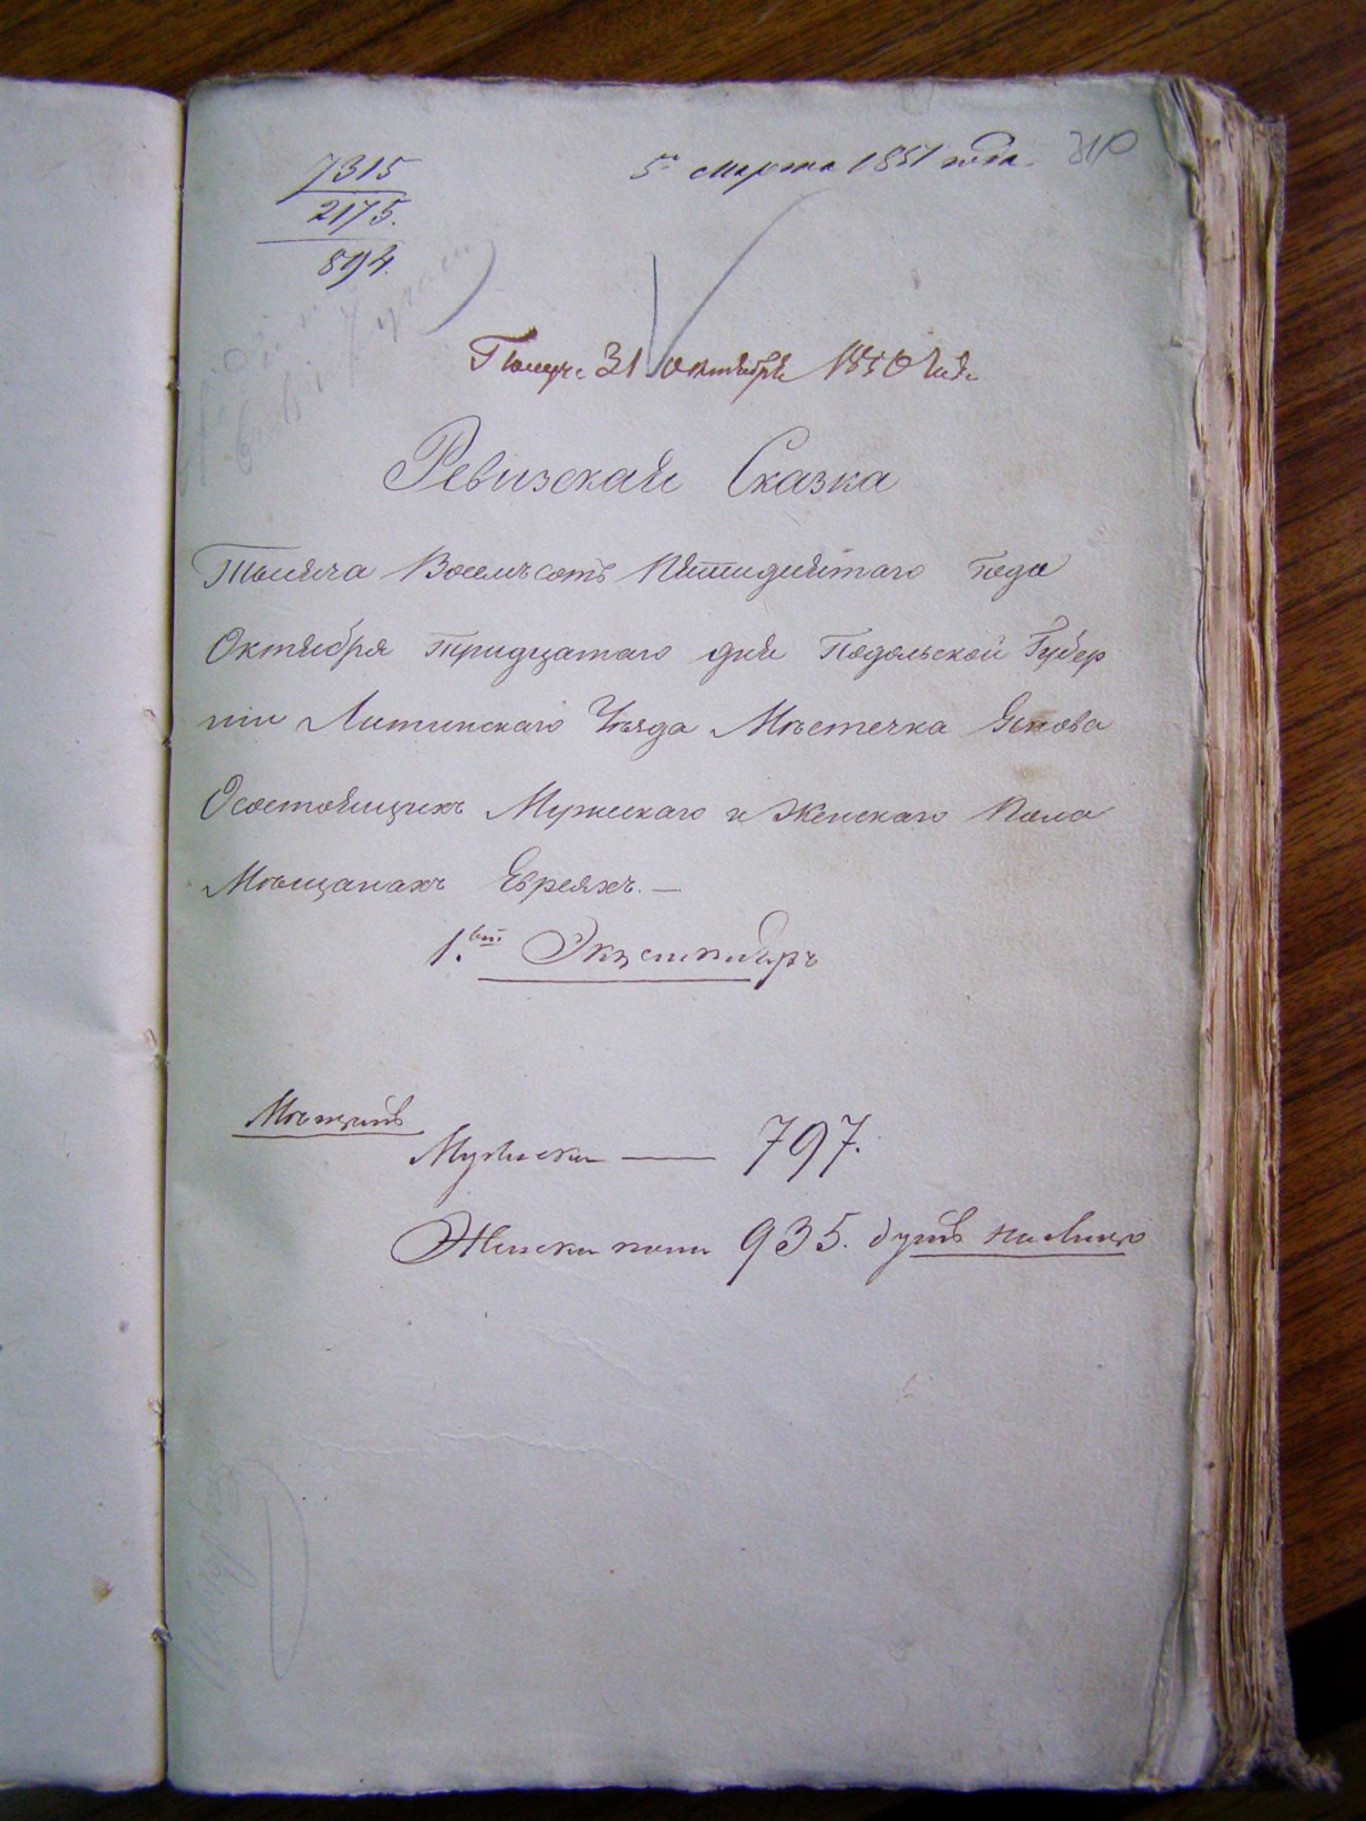 7315
2175.
894.
5 марта 1851 года.
310
Получ: 31 октября 1850 года
Ревизская Сказка
Тысяча Восемьсотъ Пятидесятаго года
Октября тридцатаго дня Подольской Губер
ніи Литинскаго Уѣзда Мѣстечка Янова
О состоящихъ Мужескаго и Женскаго Пола
Мѣщанахъ Евреяхъ. —
1. вый Экземпляръ
Мѣщанъ
Мужеска — 797.
Женска пола 935. душъ на лицо